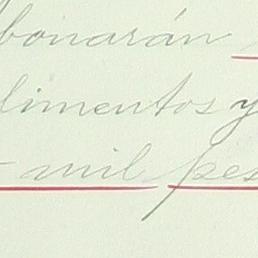 bonarán
limentos y
mil pes